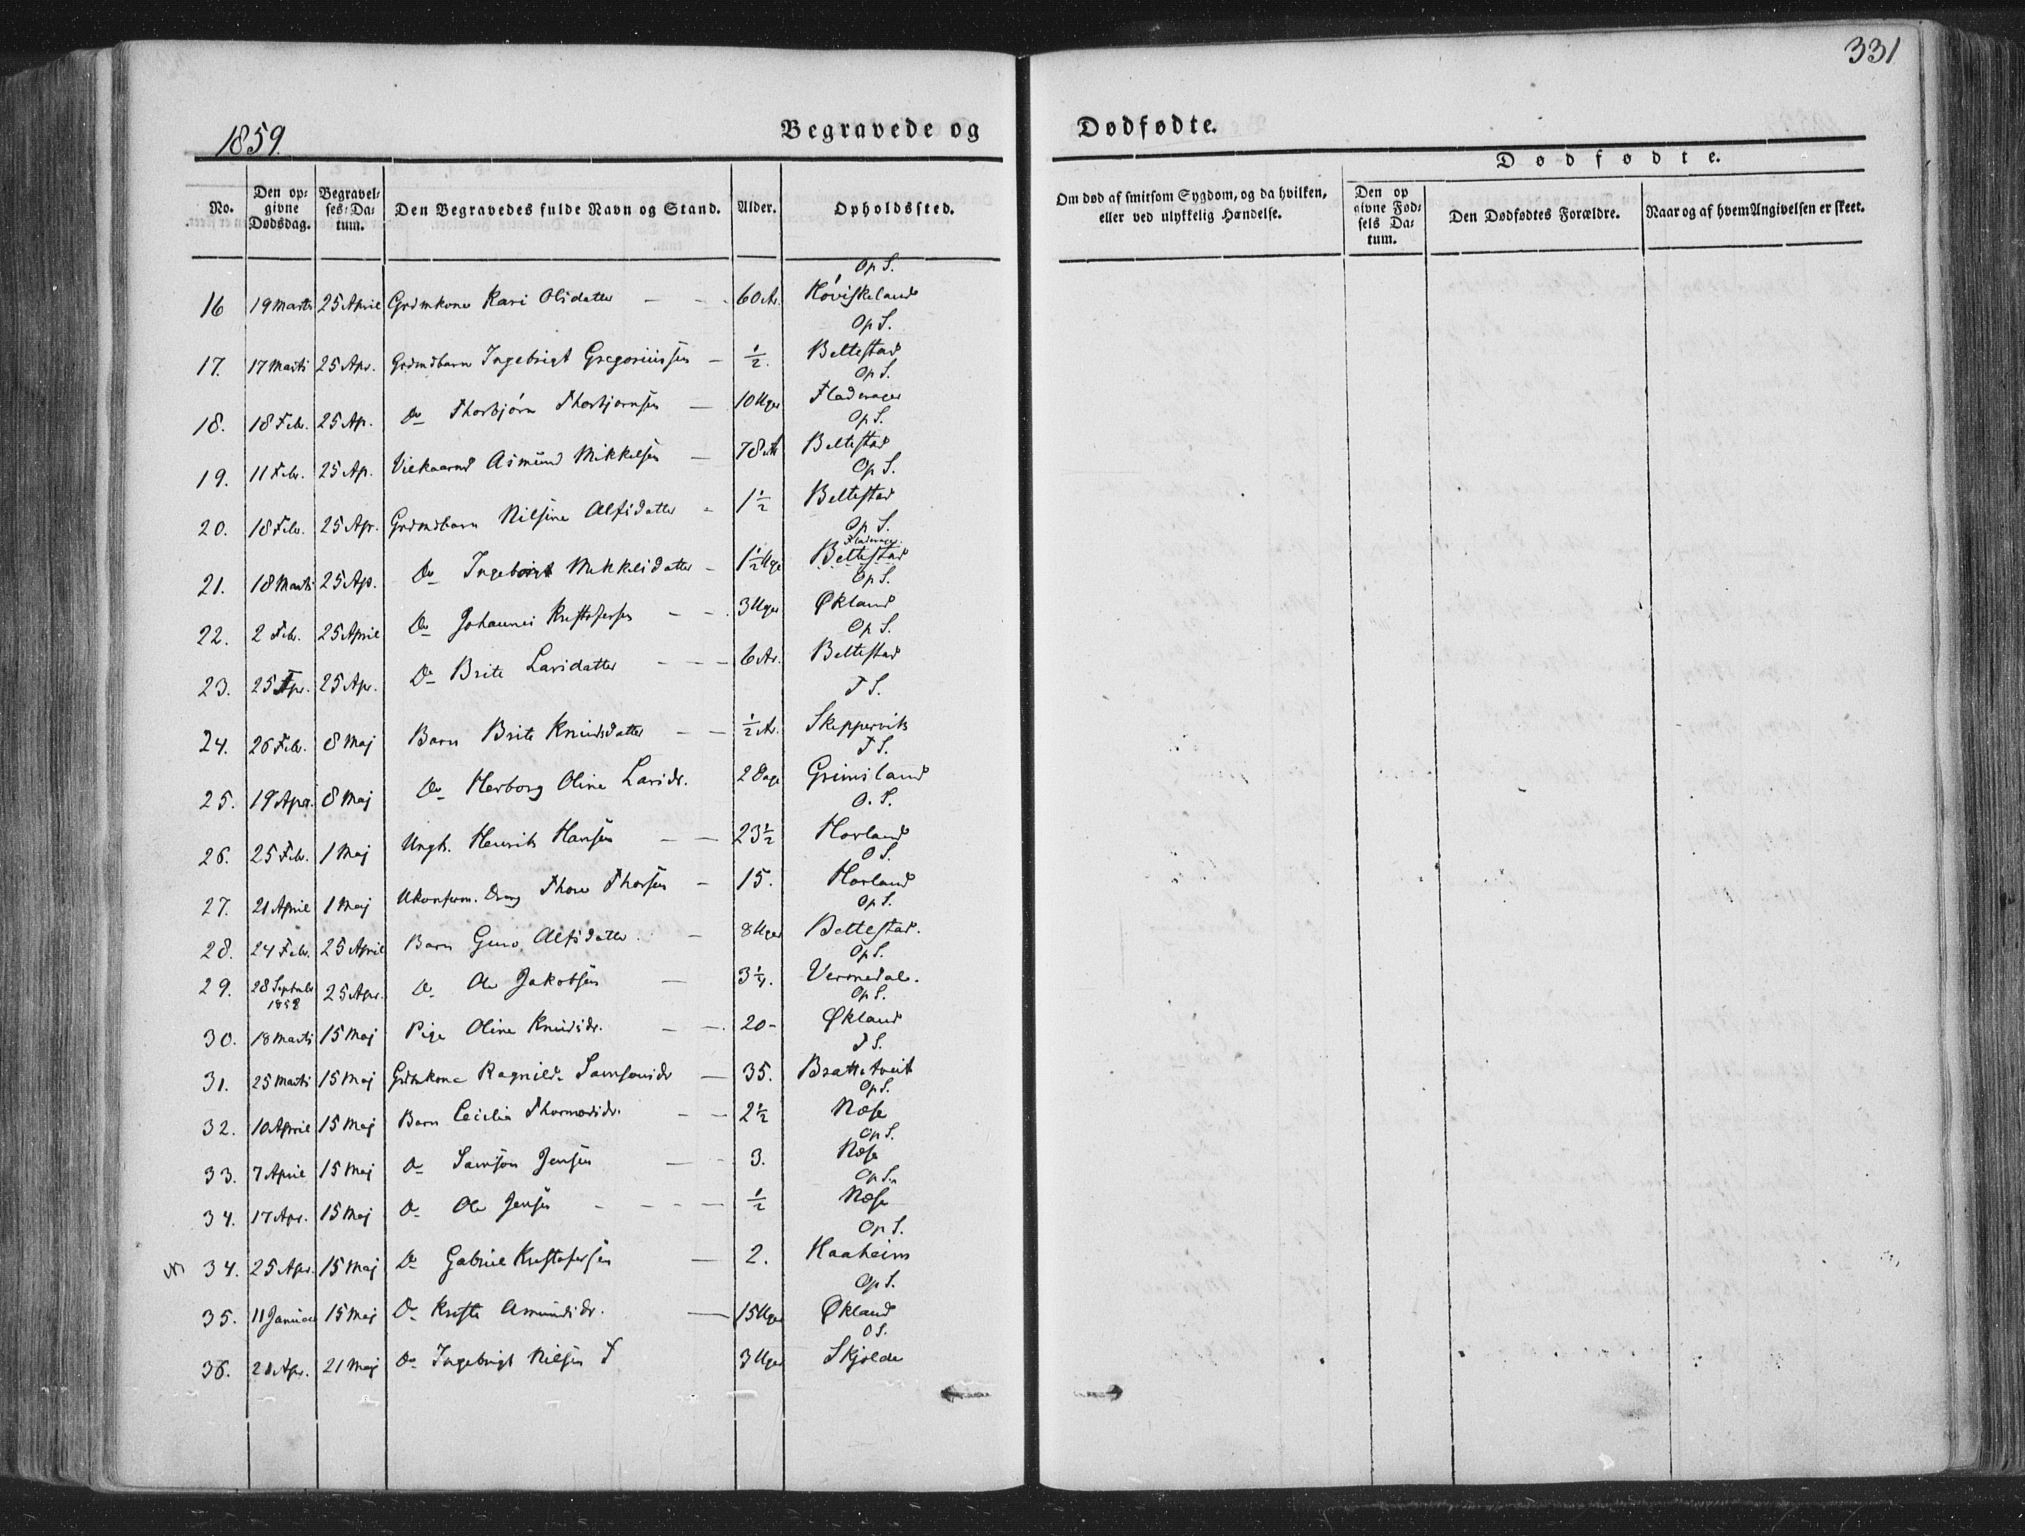 331
1859.
Begravede og Dødfødte.
Dødfødte.
No.
Den opgivne Dødsdag.
Begravelses-Datum.
Den Begravedes fulde Navn og Stand.
Alder.
Opholdssted.
Om død af smitsom Sygdom, og da hvilken, eller ved ulykkelig Hændelse.
Den opgivne Fødsels Datum.
Den Dødfødtes Forældre.
Naar og af hvem Angivelsen er skeet.
16 19 Marts 25 April Grdmkone Kari Olsdatter 60 Ar. Op S. Høviskeland
17. 17 Marts 25 Apr. Grdmdbarn Ingebrigt Gregoriussen ½. Op S. Beltestad
18. 18 Febr. 25 Ap. Do Thorbjørn Thorbjørnsen 10 Uger Op S. Fladerager
19. 11 Febr. 25 Ap. Vilkaarmd Asmund Mikkelsen 78 Ar Op S. Beltestad
20. 18 Febr. 25 Apr. Grdmdbarn Nilsine Alfsdatter 1½ Op S. Beltestad
21. 18 Marts 25 Ap. Do Ingeborg Mikkelsdatter 1½ Uge Op S. Fladerager. Beltestad
22. 2 Febr. 25 April Do Johannes Kristofersen 3 Uger Op S. Økland
23. 25 Apr. 25 Apr. Do Brite Larsdatter 6 Ar. Op S. Beltestad
24. 26 Febr. 8 Maj Barn Brite Knudsdatter ½ Ar. T S. Skeppervik
25. 19 Apr. 8 Maj Do Herborg Oline Larsdr. 2 Dage T S. Grimsland
26. 25 Febr. 1 Maj Ungk. Henrik Hansen 23½ O. S. Hovland
27. 21 April 1 Maj Ukonferm. Dreng Thore Thorsen 15. O S. Hovland
28. 24 Febr. 25 April Barn Guro Alfsdatter 8 Uger Op S. Beltestad.
29. 28 Septembr 1858 25 Apr. Do Ole Jakobsen 3¼. Op S. Vernedal.
30. 18 Marts 15 Maj Pige Oline Knudsdr. 20 Op S. Økland
31. 25 Marts 15 Maj Grdmkone Ragnilde Samsonsdr 35. T S. Brattetveit
32. 10 April 15 Maj Barn Cecilia Thormodsdr. 2½ Op S. Næse
33. 7 April 15 Maj Do Samson Jensen 3. Op S. Næse
34. 17 Apr. 15 Maj Do Ole Jensen ½ Op S. Næse
34. 25 Apr. 15 Maj Do Gabriel Kristofersen 2. Op S. Haaheim
35. 11 Januar 15 Maj Do Kriste Amundsdr. 15 Uger Op S. Økland
36. 20 Apr. 21 Maj Do Ingebrigt Nilsen 3 Uger O S. Skjolde